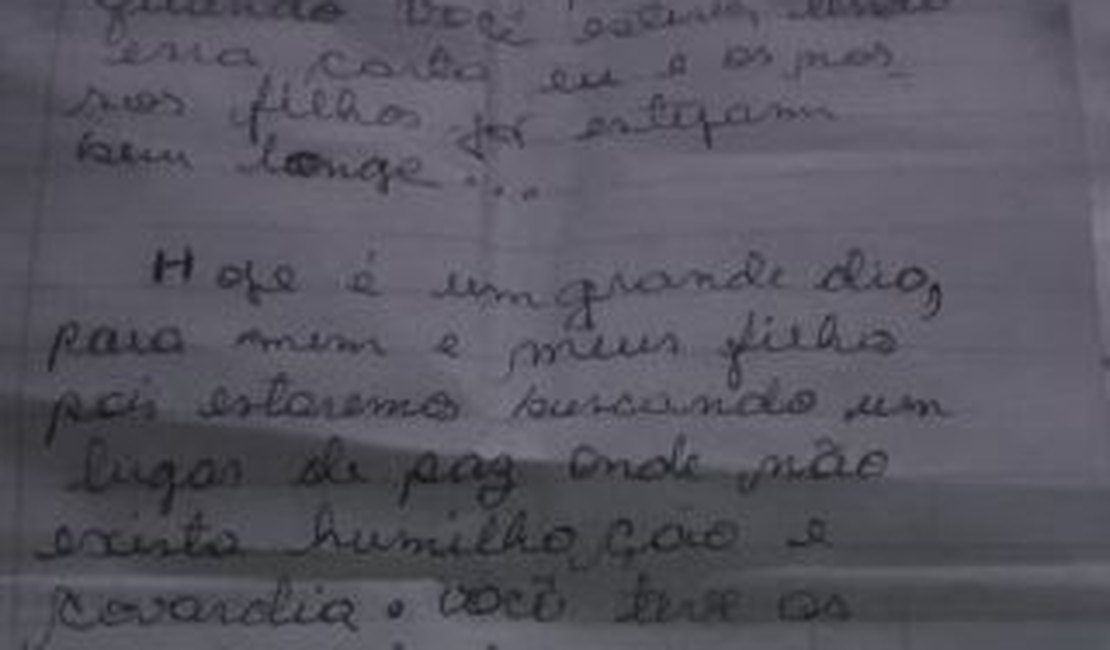 quando você estiver lendo
essa carta eu e os nos
sos filhos já estejam
bem longe...
Hoje é um grande dia,
para mim e meus filho
pois estaremos buscando um
lugar de paz onde não
exista humilhação e
covardia. você teve os